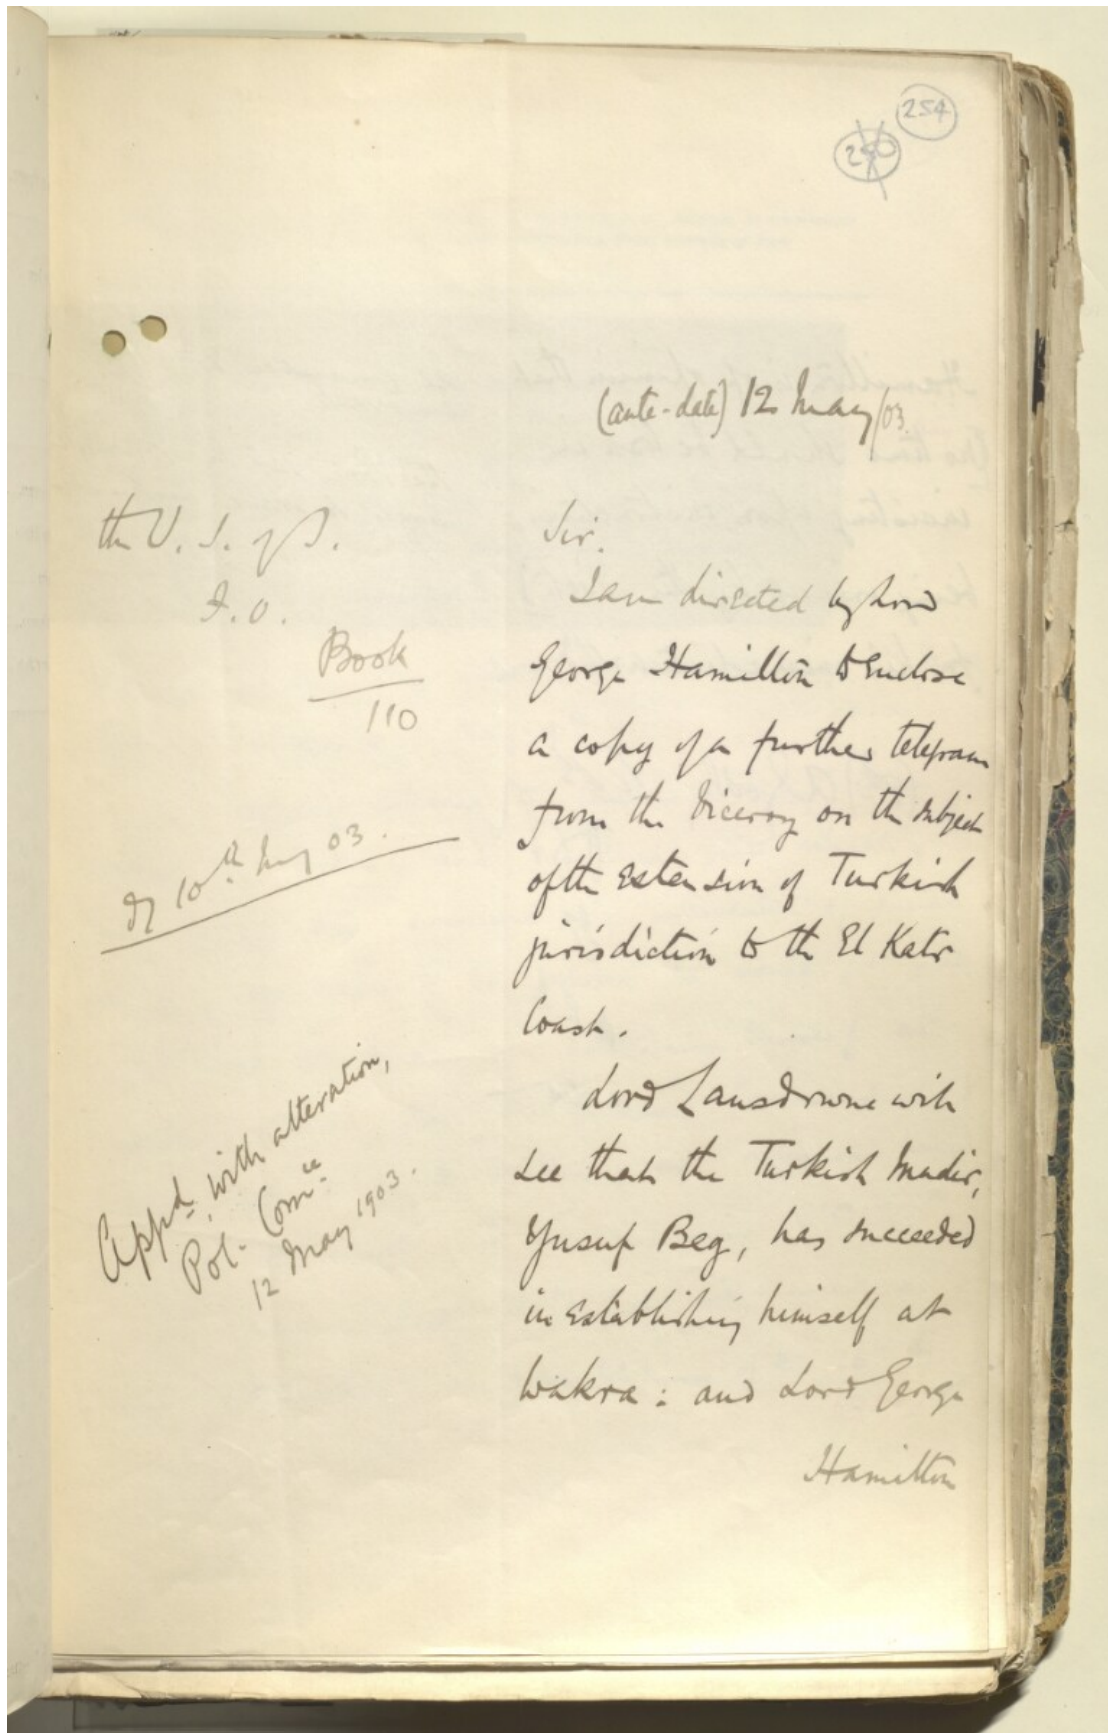 254
250
(ante-date) 12 May/03.
the U. S. of S.
F.O.
Book
110
Dy 10th May 03.
Appd. with alteration,
Pol. Comee.
12 May 1903.
Sir.
I am directed by Lord
George Hamilton to enclose
a copy of a further telegram
from the Viceroy on the subject
of the extension of Turkish
jurisdiction to the El Katr
Coast.
Lord Lansdowne will
see that the Turkish Mudir,
Yusuf Beg, has succeeded
in establishing himself at
Wakra : and Lord George
Hamilton